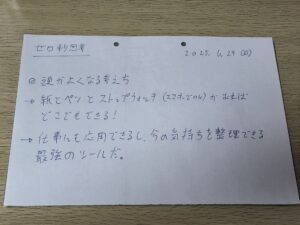 ゼロ秒思考
2025.6.29(日)
◎ 頭がよくなる考え方
→ 紙とペンとストップウォッチ(スマホでOK)があれば
どこでもできる!
→ 仕事にも応用できるし、今の気持ちを整理できる
最強のツールだ。